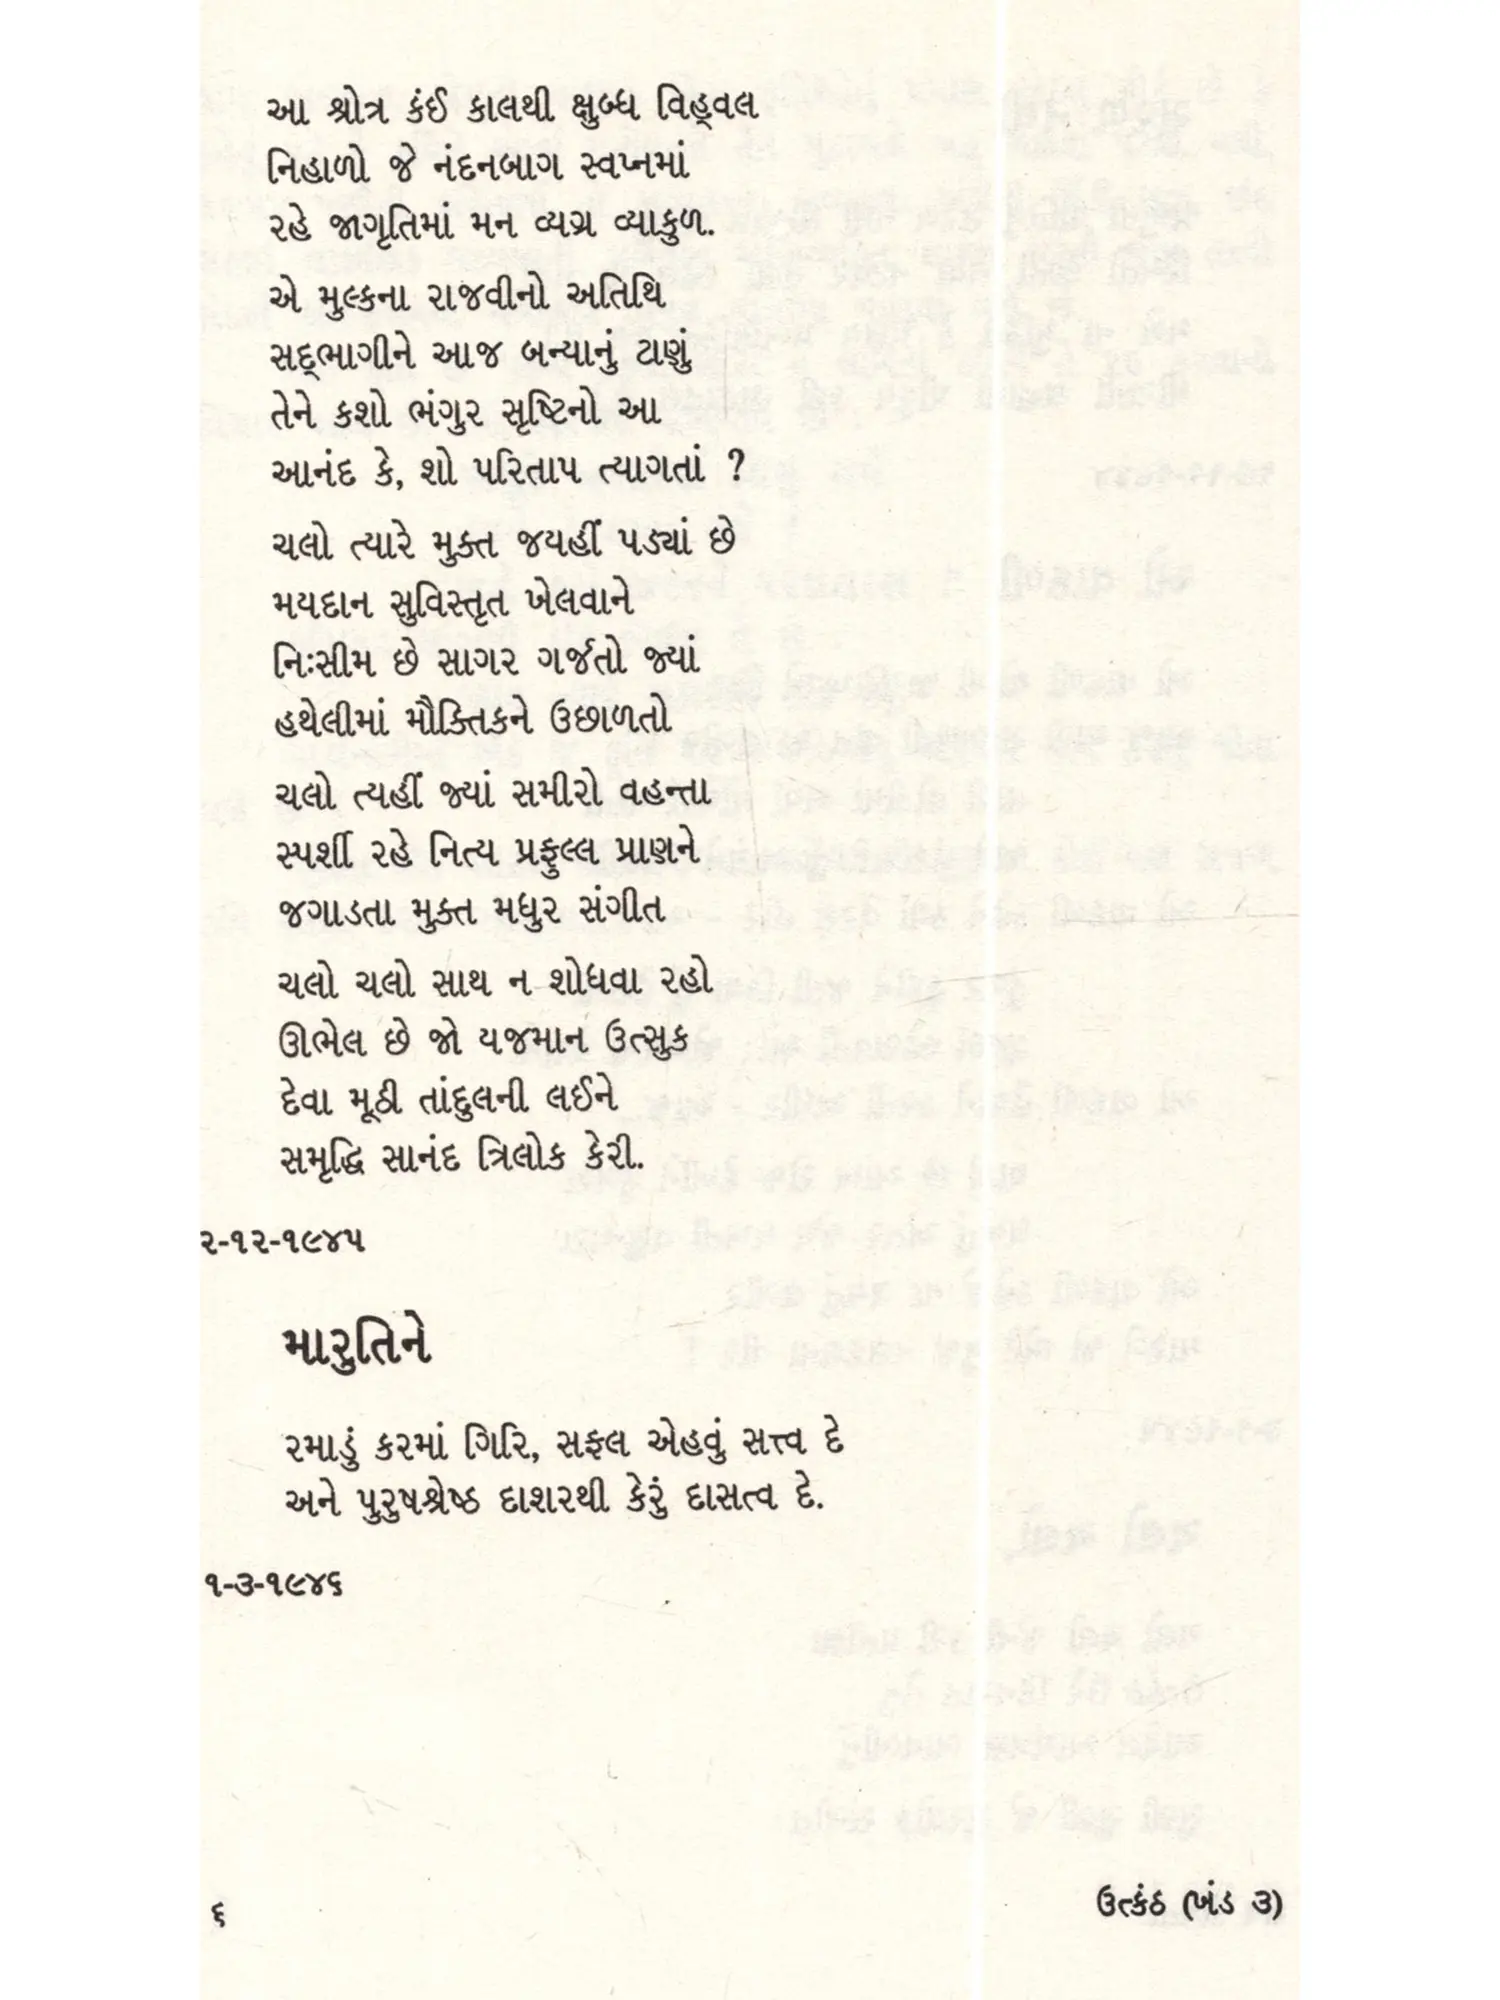 આ શ્રોત્ર કંઈ કાલથી ક્ષુબ્ધ વિહ્વલ
નિહાળો જે નંદનબાગ સ્વપ્નમાં
રહે જાગૃતિમાં મન વ્યગ્ર વ્યાકુળ.
એ મુલ્કના રાજવીનો અતિથિ
સદ્ભાગીને આજ બન્યાનું ટાણું
તેને કશો ભંગુર સૃષ્ટિનો આ
આનંદ કે, શો પરિતાપ ત્યાગતાં ?
ચલો ત્યારે મુક્ત જયહીં પડ્યાં છે
મયદાન સુવિસ્તૃત ખેલવાને
નિઃસીમ છે સાગર ગર્જતો જ્યાં
હથેલીમાં મૌક્તિકને ઉછાળતો
ચલો ત્યહીં જ્યાં સમીરો વહન્તા
સ્પર્શી રહે નિત્ય પ્રફુલ્લ પ્રાણને
જગાડતા મુક્ત મધુર સંગીત
ચલો ચલો સાથ ન શોધવા રહો
ઊભેલ છે જો યજમાન ઉત્સુક
દેવા મૂઠી તાંદુલની લઈને
સમૃદ્ધિ સાનંદ ત્રિલોક કેરી.
૨-૧૨-૧૯૪૫
મારુતિને
રમાડું કરમાં ગિરિ, સફલ એહવું સત્ત્વ દે
અને પુરુષશ્રેષ્ઠ દાશરથી કેરું દાસત્વ દે.
૧-૩-૧૯૪૬
૬
ઉત્કંઠ (ખંડ ૩)